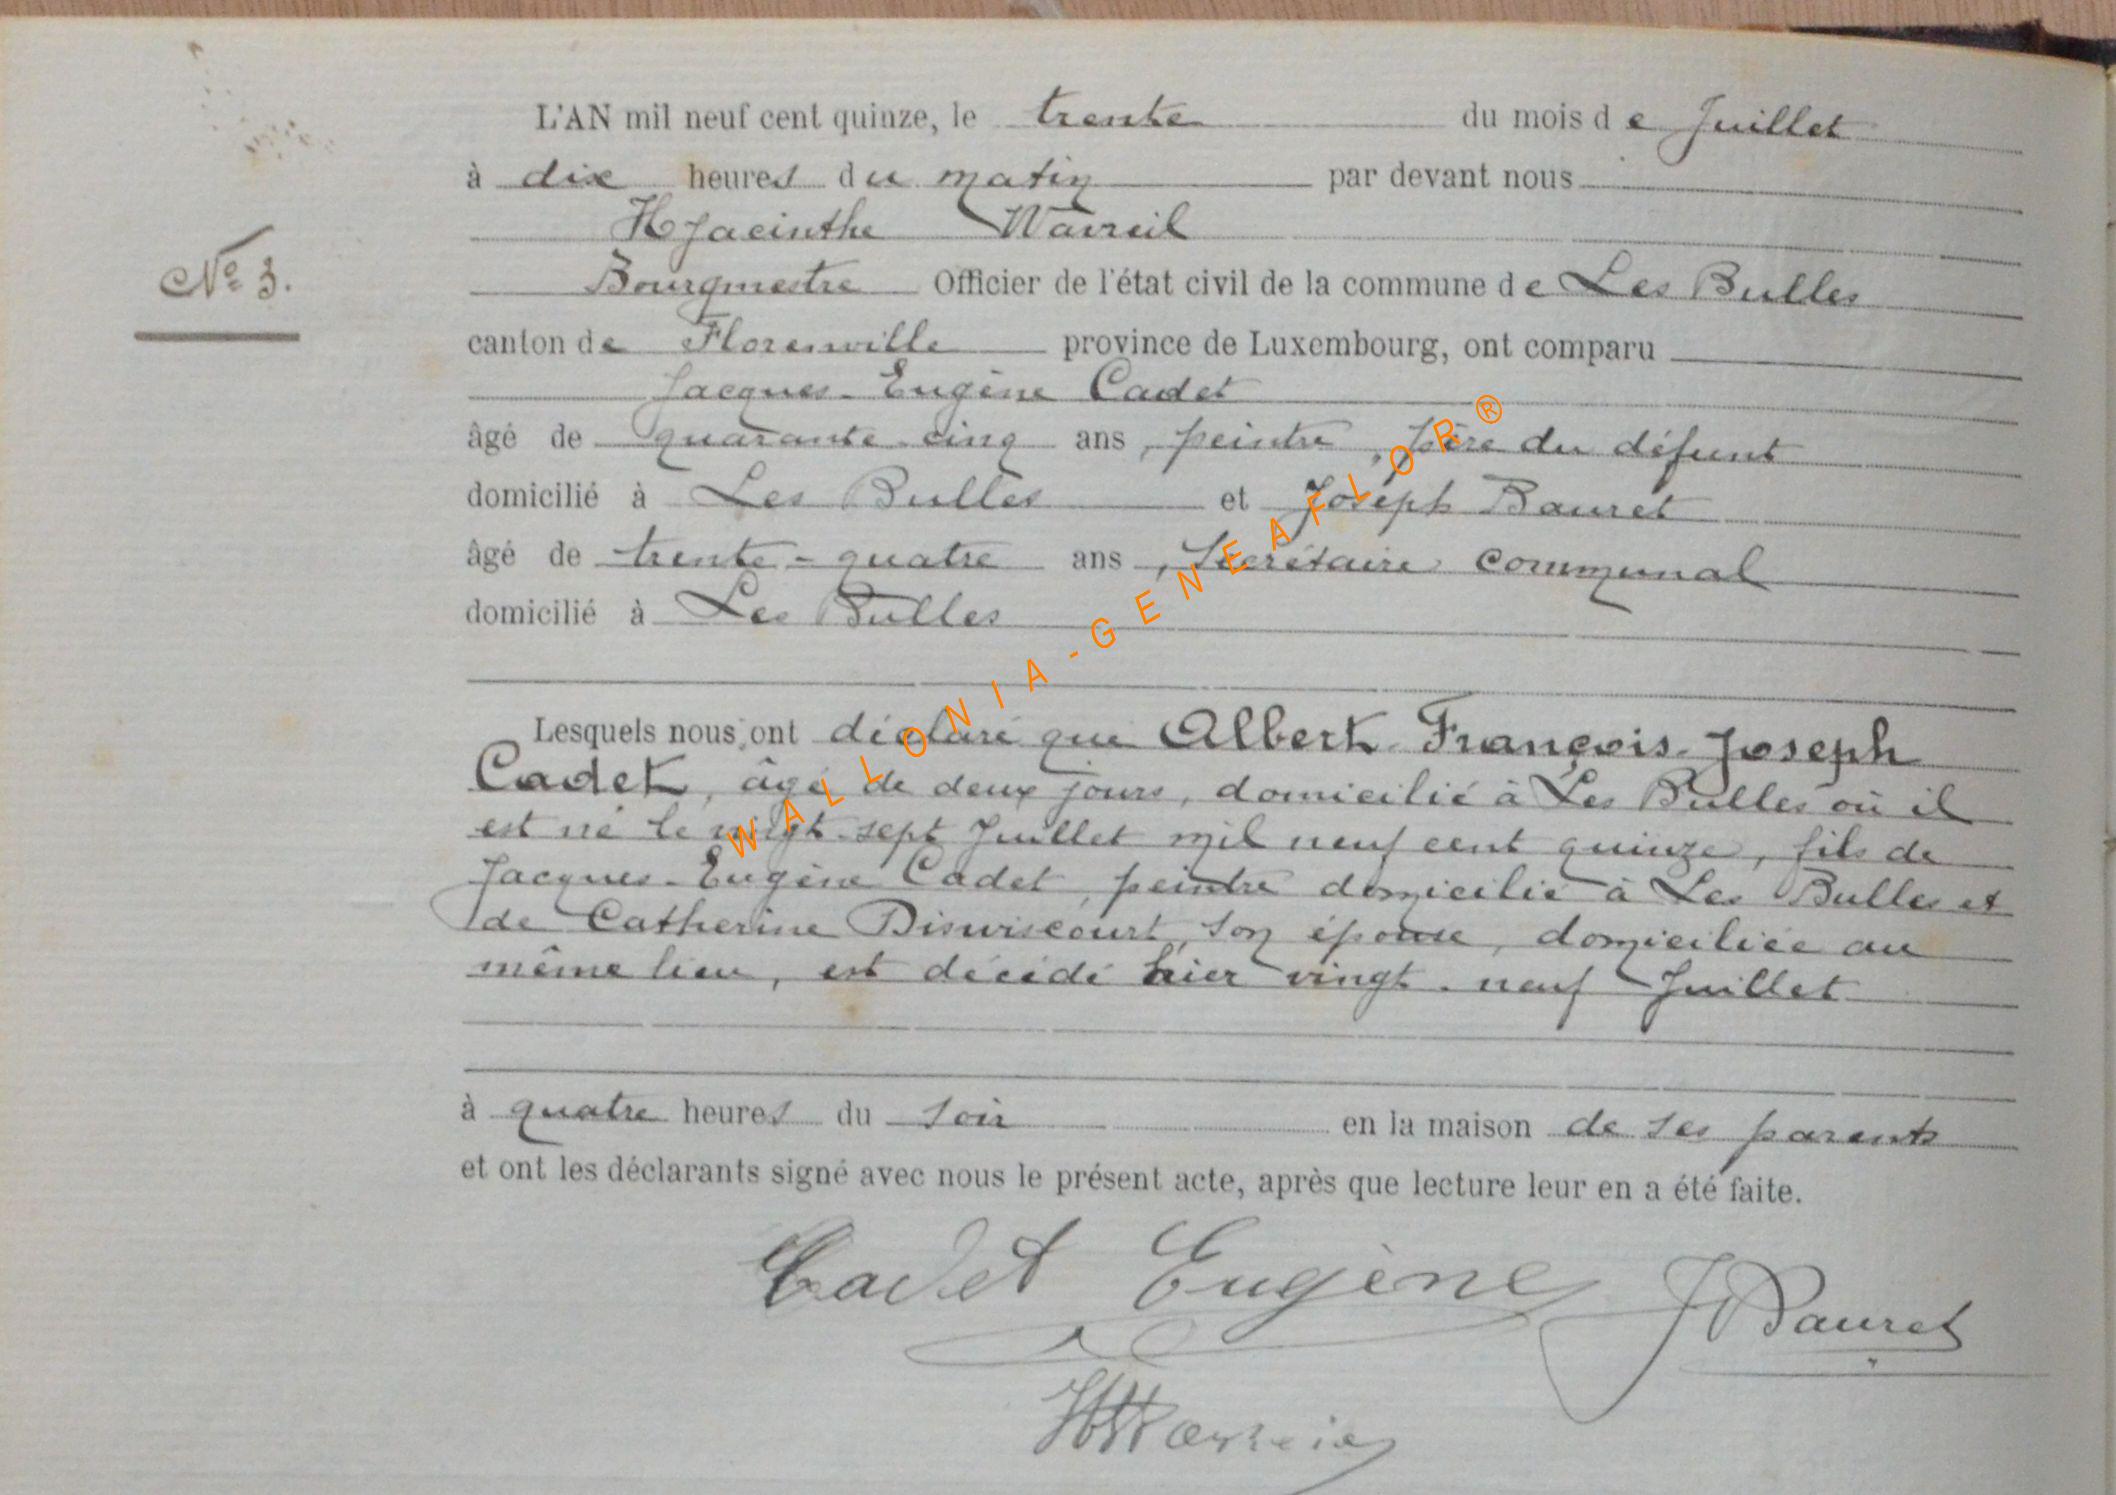 L'AN mil neuf cent quinze, le trente du mois de Juillet
à dix heures du matin par devant nous
Hyacinthe Wavreil
Nº 3.
Bourgmestre Officier de l'état civil de la commune de Les Bulles
canton de Florenville province de Luxembourg, ont comparu
Jacques-Eugène Cadet
âgé de quarante-cinq ans, peintre, père du défunt
domicilié à Les Bulles et Joseph Bauret
âgé de trente-quatre ans, Secrétaire communal
domicilié à Les Bulles
Lesquels nous ont déclaré que Albert-François-Joseph
Cadet, âgé de deux jours, domicilié à Les Bulles où il
est né le vingt-sept Juillet mil neuf cent quinze, fils de
Jacques-Eugène Cadet, peintre domicilié à Les Bulles et
de Catherine Disviscourt, son épouse, domiciliée au
même lieu, est décédé hier vingt-neuf Juillet
à quatre heures du soir en la maison de ses parents
et ont les déclarants signé avec nous le présent acte, après que lecture leur en a été faite.
Cadet Eugène
J Bauret
H Wavreil
WALLONIA-GENEAFLOR®